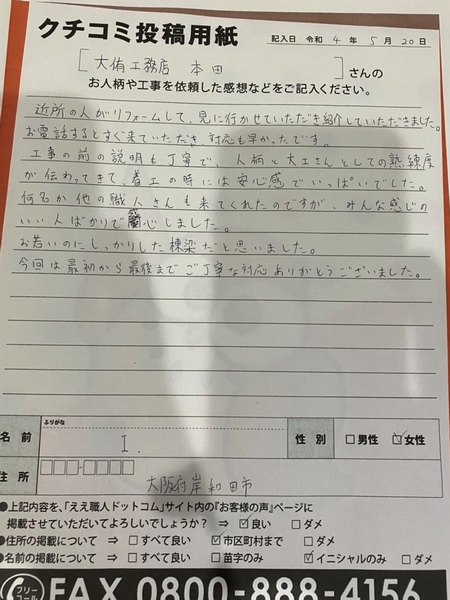 クチコミ投稿用紙
記入日 令和 4 年 5 月 20 日
[大侑工務店 本田]さんの
お人柄や工事を依頼した感想などをご記入ください。
近所の人がリフォームして、見に行かせていただき紹介していただきました。
お電話するとすぐ来ていただき、対応も早かったです。
工事の前の説明も丁寧で、人柄と大工さんとしての熟練度
が伝わってきて、着工の時には安心感でいっぱいでした。
何名か他の職人さんも来てくれたのですが、みんな感じの
いい人ばかりで心しました。
お若いのにしっかりした棟梁だと思いました。
今回は最初から最後までご丁寧な対応ありがとうございました。
ふりがな
名前 I. 性別 □男性 ☑女性
住所 □□□-□□□□
大阪府岸和田市
●上記内容を、「ええ職人ドットコム」サイト内の『お客様の声』ページに
掲載させていただいてよろしいでしょうか? ⇒ ☑良い □ダメ
●住所の掲載について ⇒ □すべて良い ☑市区町村まで □ダメ
●名前の掲載について ⇒ □すべて良い □苗字のみ ☑イニシャルのみ □ダメ
フリーコール FAX 0800-888-4156